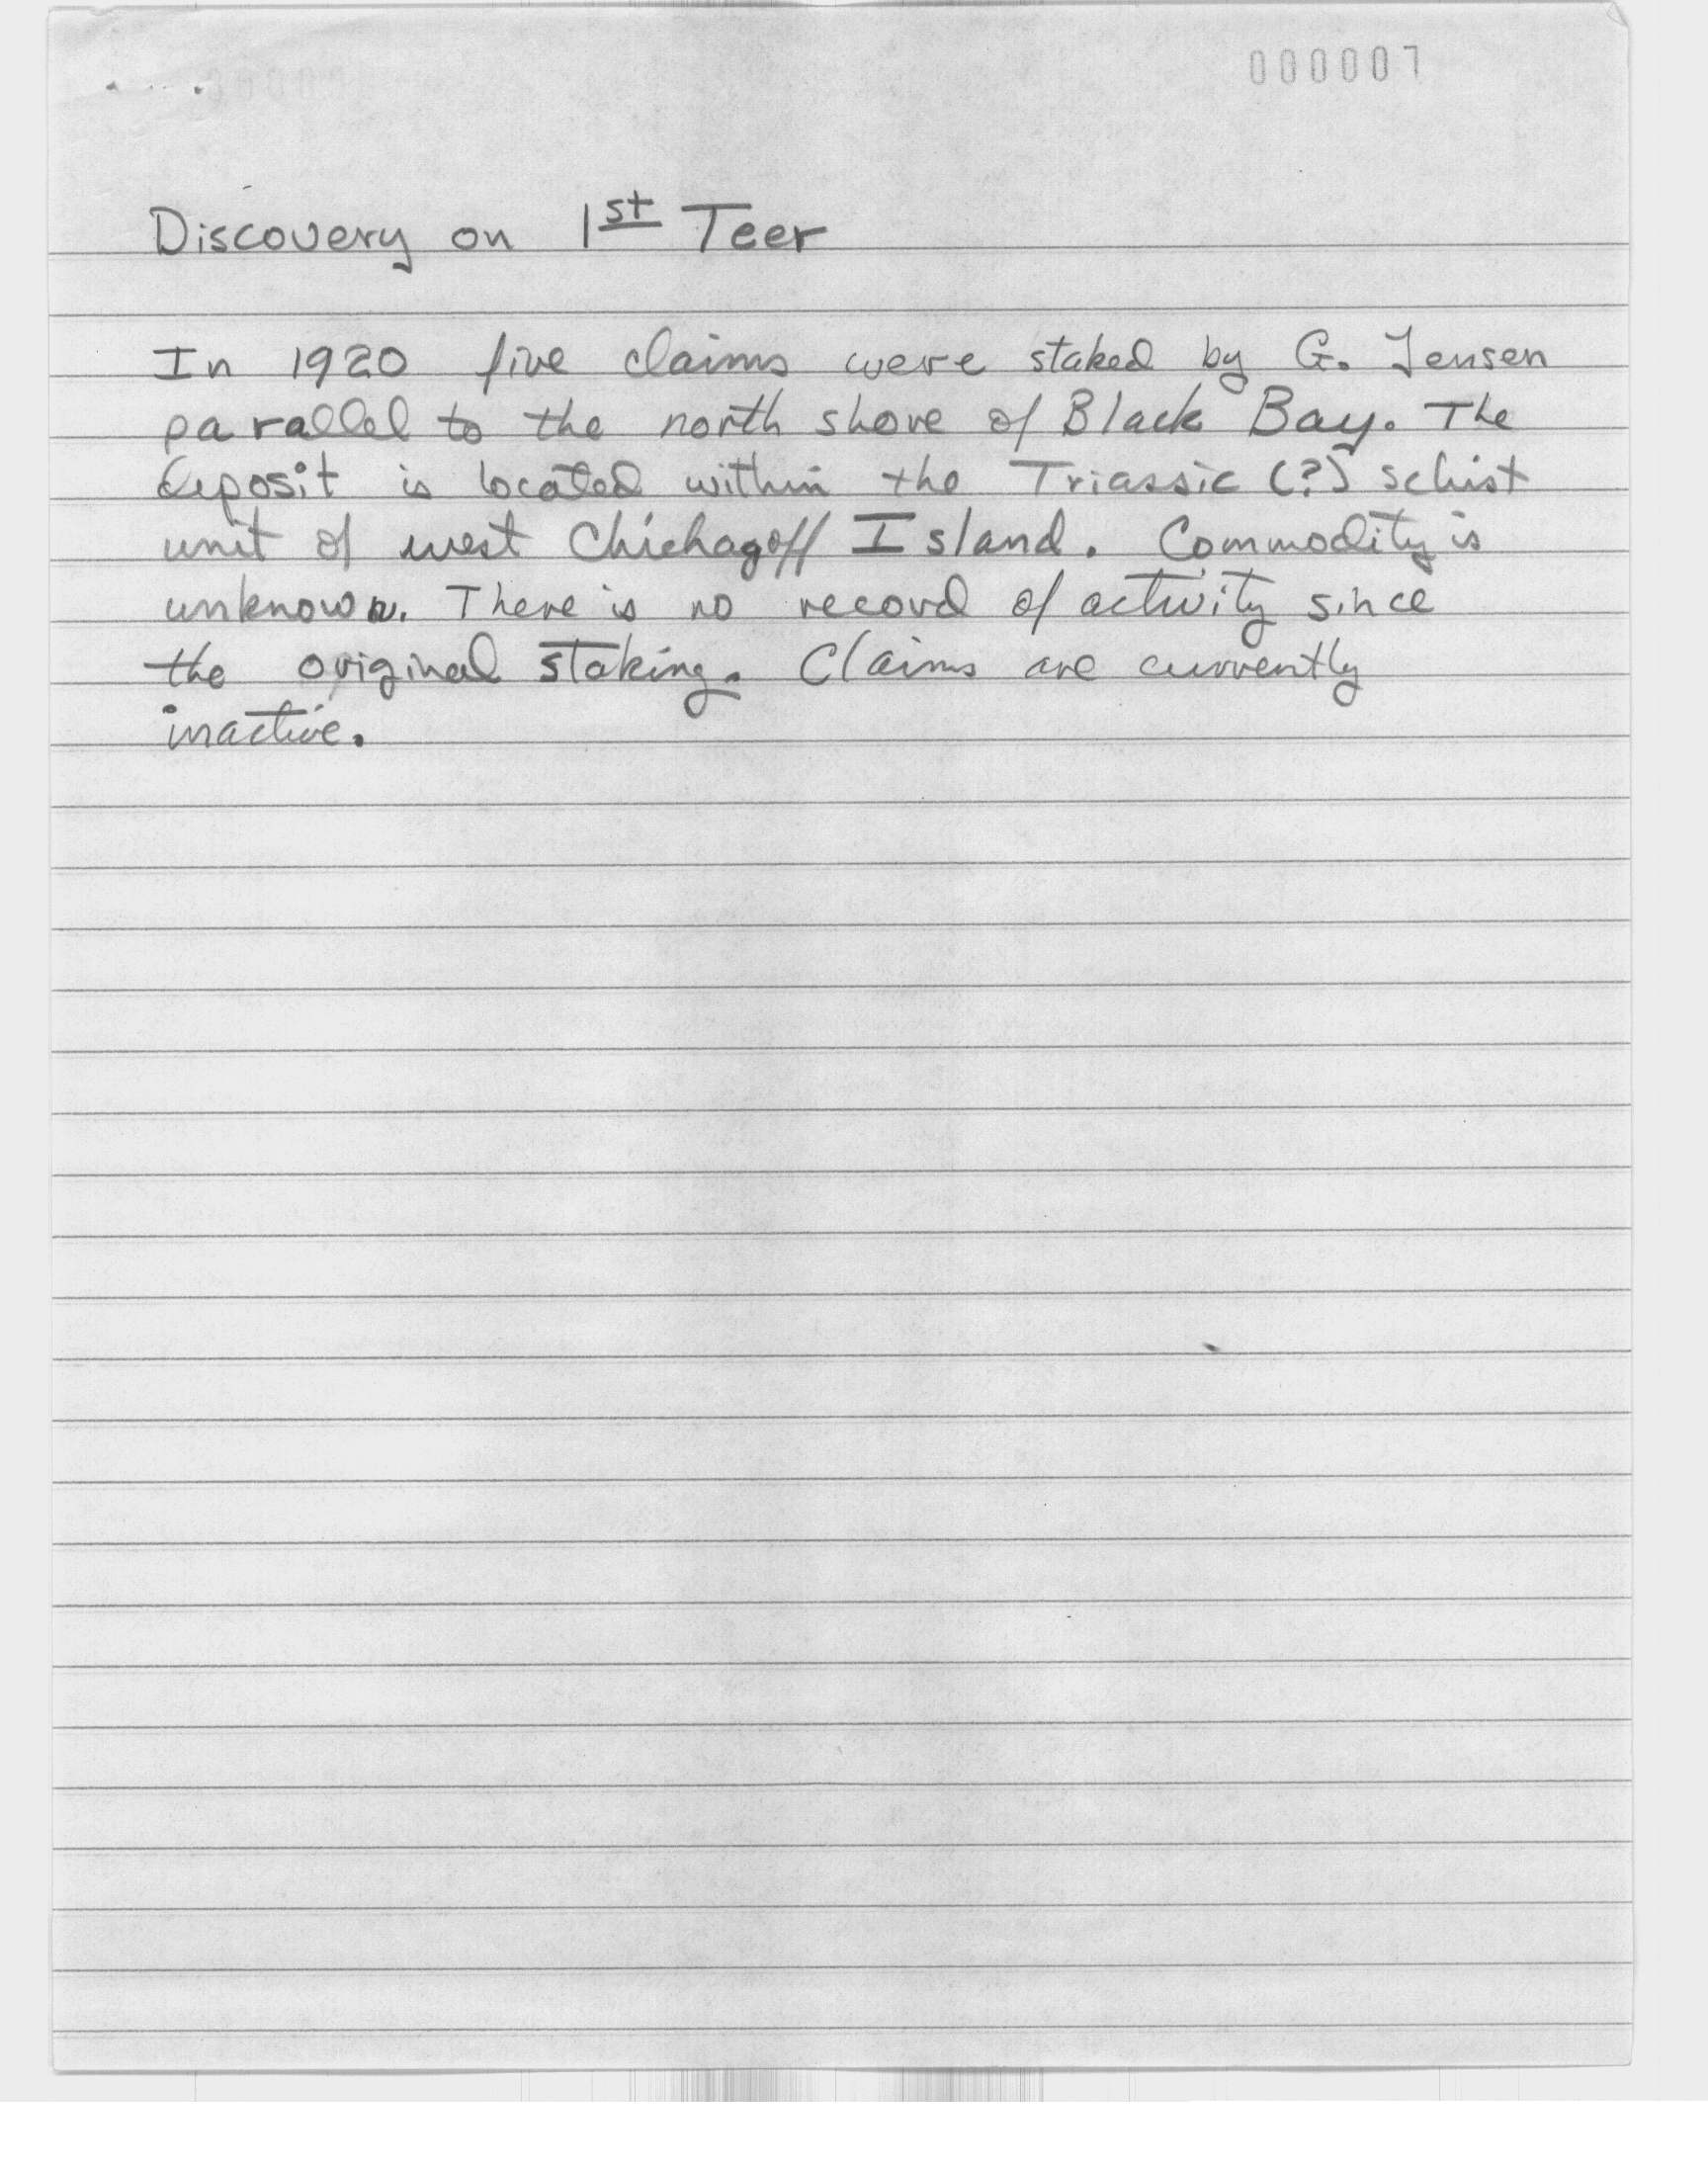 000007
Discovery on 1st Teer
In 1920 five claims were staked by G. Jensen
parallel to the north shore of Black Bay. The
deposit is located within the Triassic (?) schist
unit of west Chichagoff Island. Commodity is
unknown. There is no record of activity since
the original staking. Claims are currently
inactive.